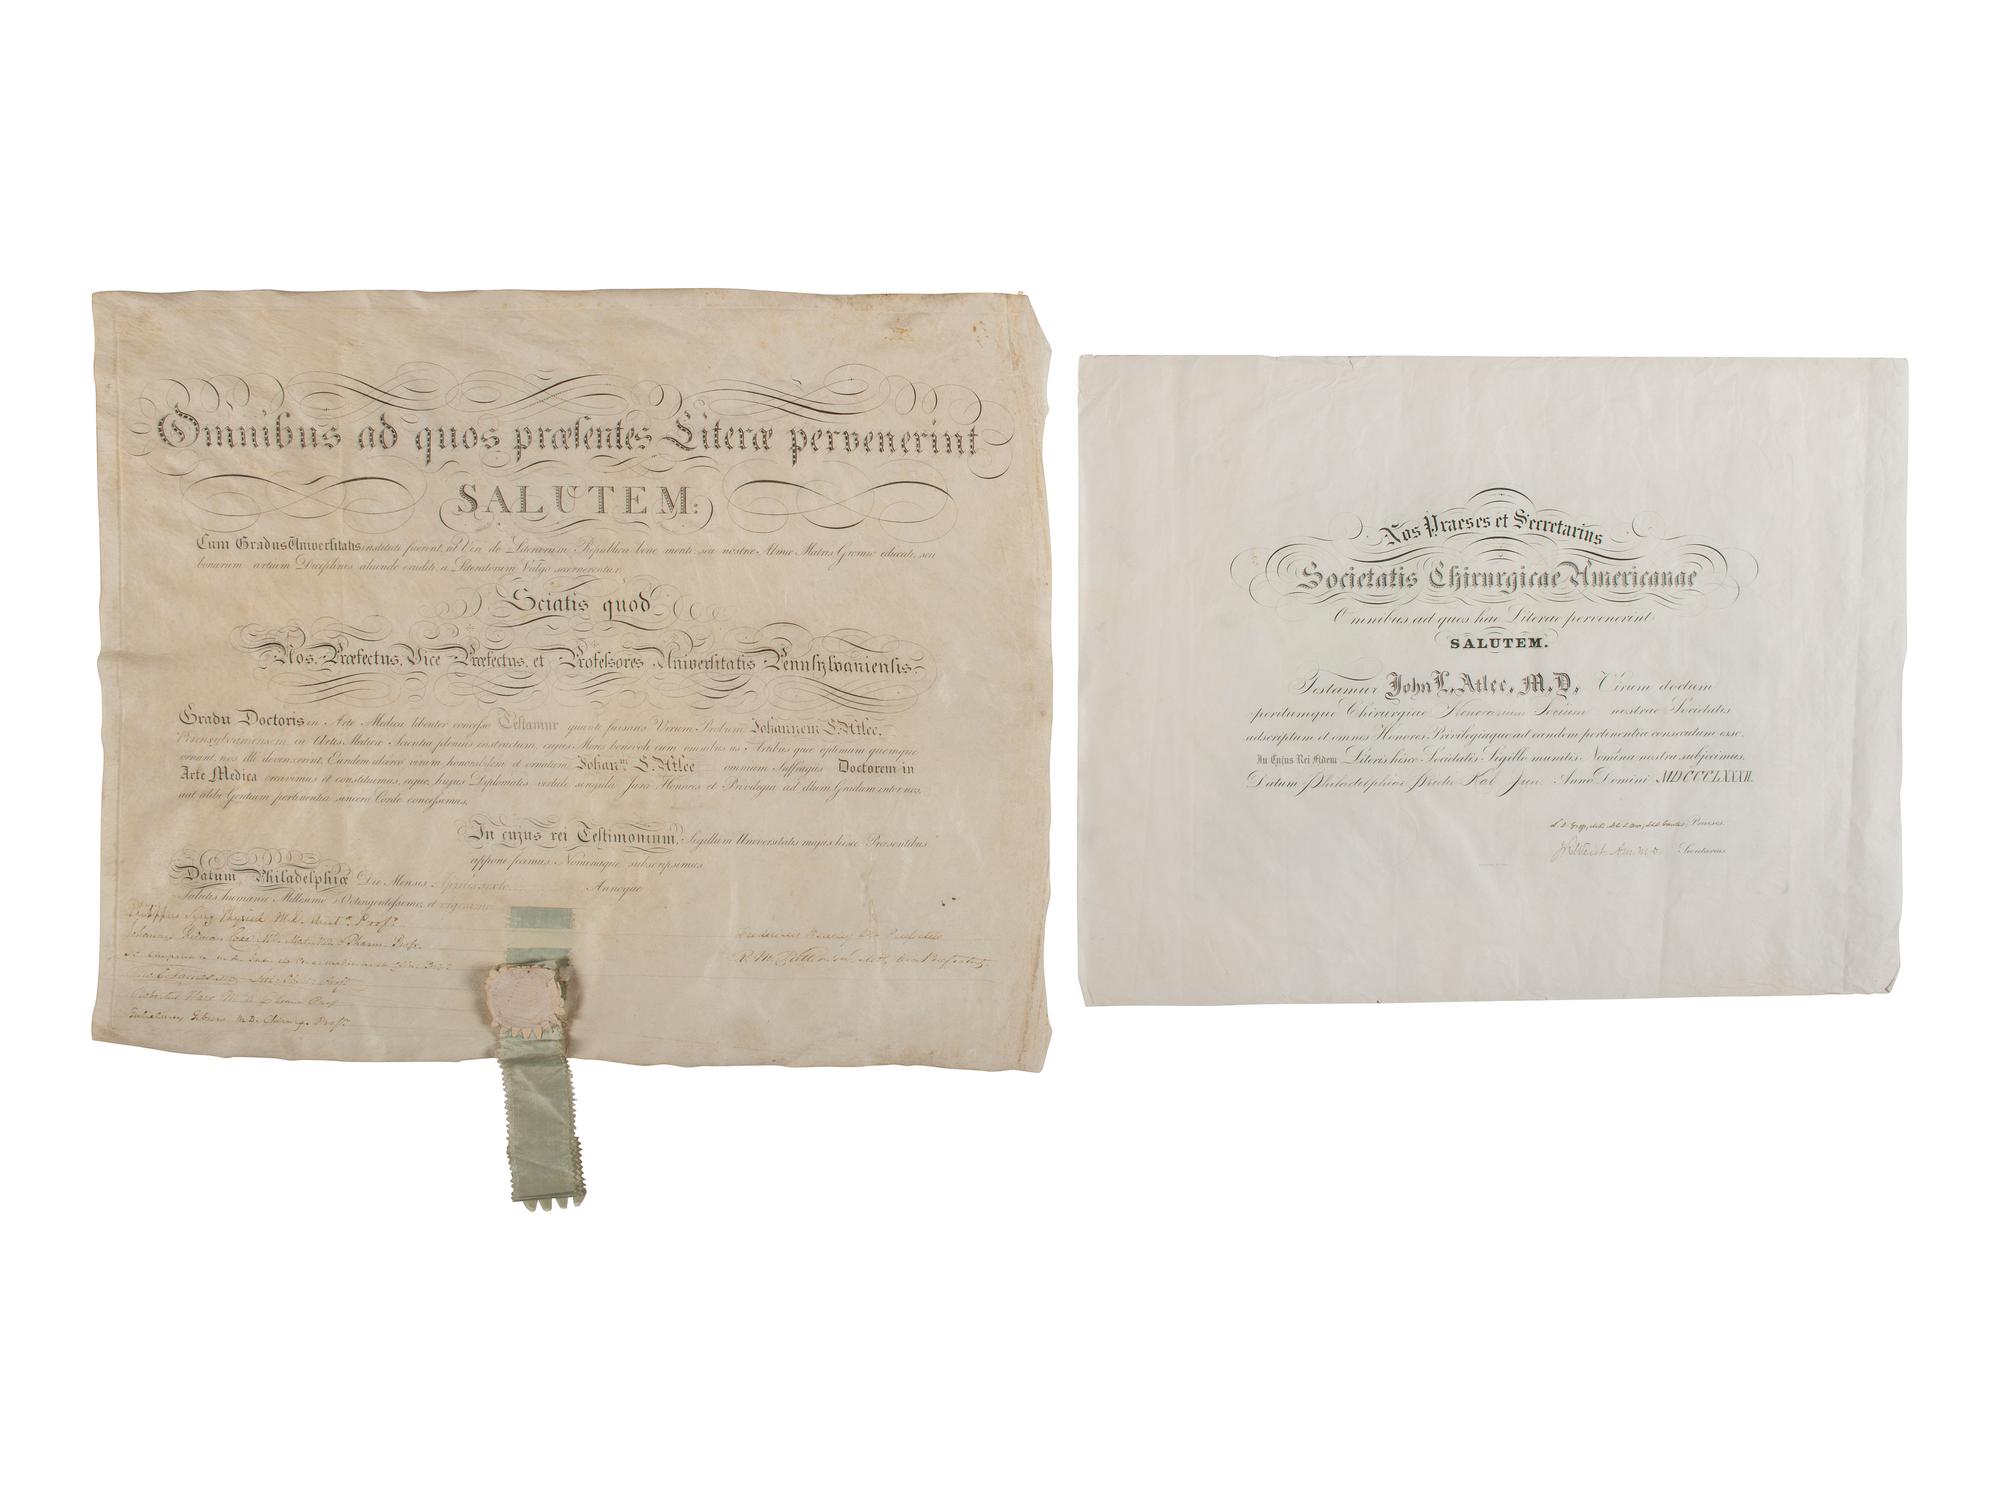 Omnibus ad quos præsentes Literæ pervenerint
SALUTEM:
Cum Gradus Universitatis instituti fuerint, ut Viri de Literarum Republica bene meriti seu nostræ Almæ Matris Gremio educati, seu
bonarum artium Disciplinis aliunde eruditi, a Literatorum Vulgo secernerentur,
Sciatis quod
Nos, Præfectus, Vice Præfectus, et Professores Universitatis Pennsylvaniensis
Gradu Doctoris in Arte Medica libenter concesso Testamur quanti facimus Virum Probum Johannem L. Atlee,
Pennsylvaniensem in Artis Medicæ Scientia plenius instructum, cujus Mores benevoli cum omnibus iis Artibus quæ optimum quemque
ornant, nos illi devinxerint. Eundem idcirco virum honorabilem et ornatum Johanm L. Atlee omnium Suffragiis Doctorem in
Arte Medica creavimus et constituimus, eique, hujus Diplomatis virtute singula Jura Honores et Privilegia ad illum Gradum inter nos,
aut alibi Gentium pertinentia sincero Corde concessimus.
In cujus rei Testimonium, Sigillum Universitatis majus hisce Præsentibus
apponi fecimus Nominaque subscripsimus
Datum Philadelphiæ Die Mensis Aprilis sexto Annoque
Salutis humanæ Millesimo Octingentessimo, et vigesimo
Philippus Syng Physick M.D. Anat. Prof.
Johannes Redman Coxe M.D. Mat. Med. & Pharm. Prof.
N. Chapman M.D.
James M.D. Prof.
Robertus Hare M.D. Chem. Prof.
Gulielmus Gibson M.D. Chirurg. Prof.
Fredericus Beasley Præfectus
R. M. Patterson Vice Præfectus
Nos Praeses et Secretarius
Societatis Chirurgicae Americanae
Omnibus ad quos hae Literae pervenerint
SALUTEM.
Testamur John L. Atlee, M.D. Virum doctum
peritumque Chirurgiae Honorarium Socium nostrae Societatis
adscriptum et omnes Honores Privilegiaque ad eandem pertinentia consecutum esse.
In Cujus Rei Fidem Literis hisce Societatis Sigillo munitis Nomina nostra subjecimus.
Datum Philadelphiae Pridie Kal Jun. Anno Domini MDCCCLXXXII.
S. D. Gross, Praeses
J R Weist Secretarius